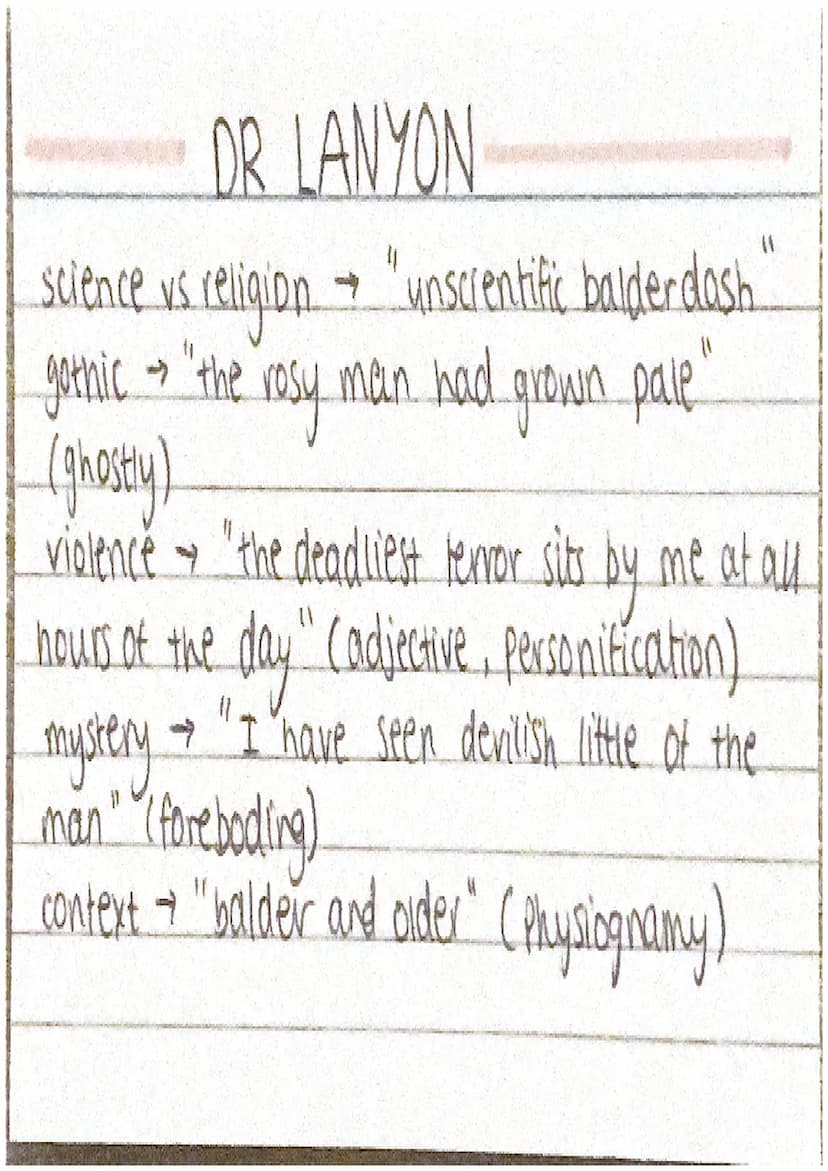 DR LANYON
science vs religion → "unscientific balderdash"
gothic → "the rosy man had grown pale"
(ghostly)
violence → "the deadliest terror sits by me at all
hours of the day" (adjective, personification)
mystery → "I have seen devilish little of the
man" (foreboding)
context → "balder and older" (physiognamy)